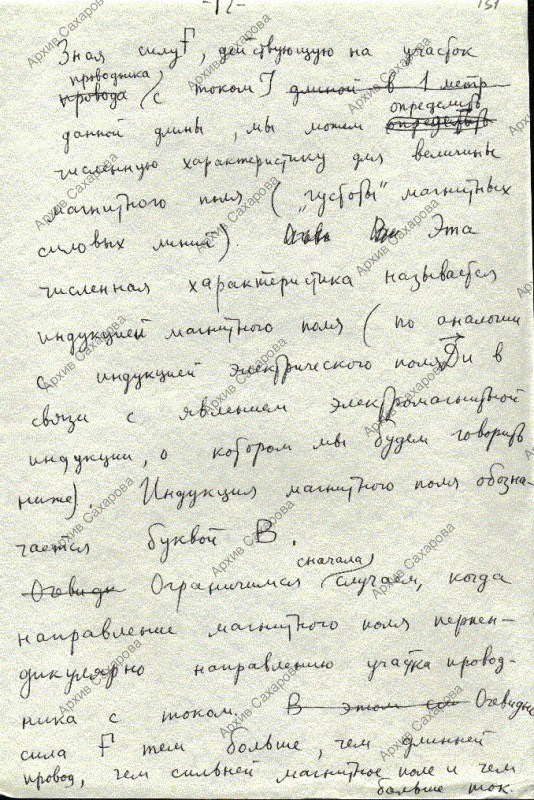 -12-
151
Зная силу F, действующую на участок
проводника
провода (с током I длиной в 1 метр
определить
данной длины, мы можем определить
численную характеристику для величины
магнитного поля ( „густоты" магнитных
силовых линий) Эта
численная характеристика называется
индукцией магнитного поля (по аналогии
с индукцией электрического поля D и в
связи с явлением электромагнитной
индукции, о котором мы будем говорить
ниже). Индукция магнитного поля обозна-
чается буквой В.
сначала
Очевидн Ограничимся случаем, когда
направление магнитного поля перпен-
дикулярно направлению участка провод-
ника с током. В этом сл Очевидно
сила F тем больше, чем длинней
провод, чем сильней магнитное поле и чем
больше ток.
Архив Сахарова